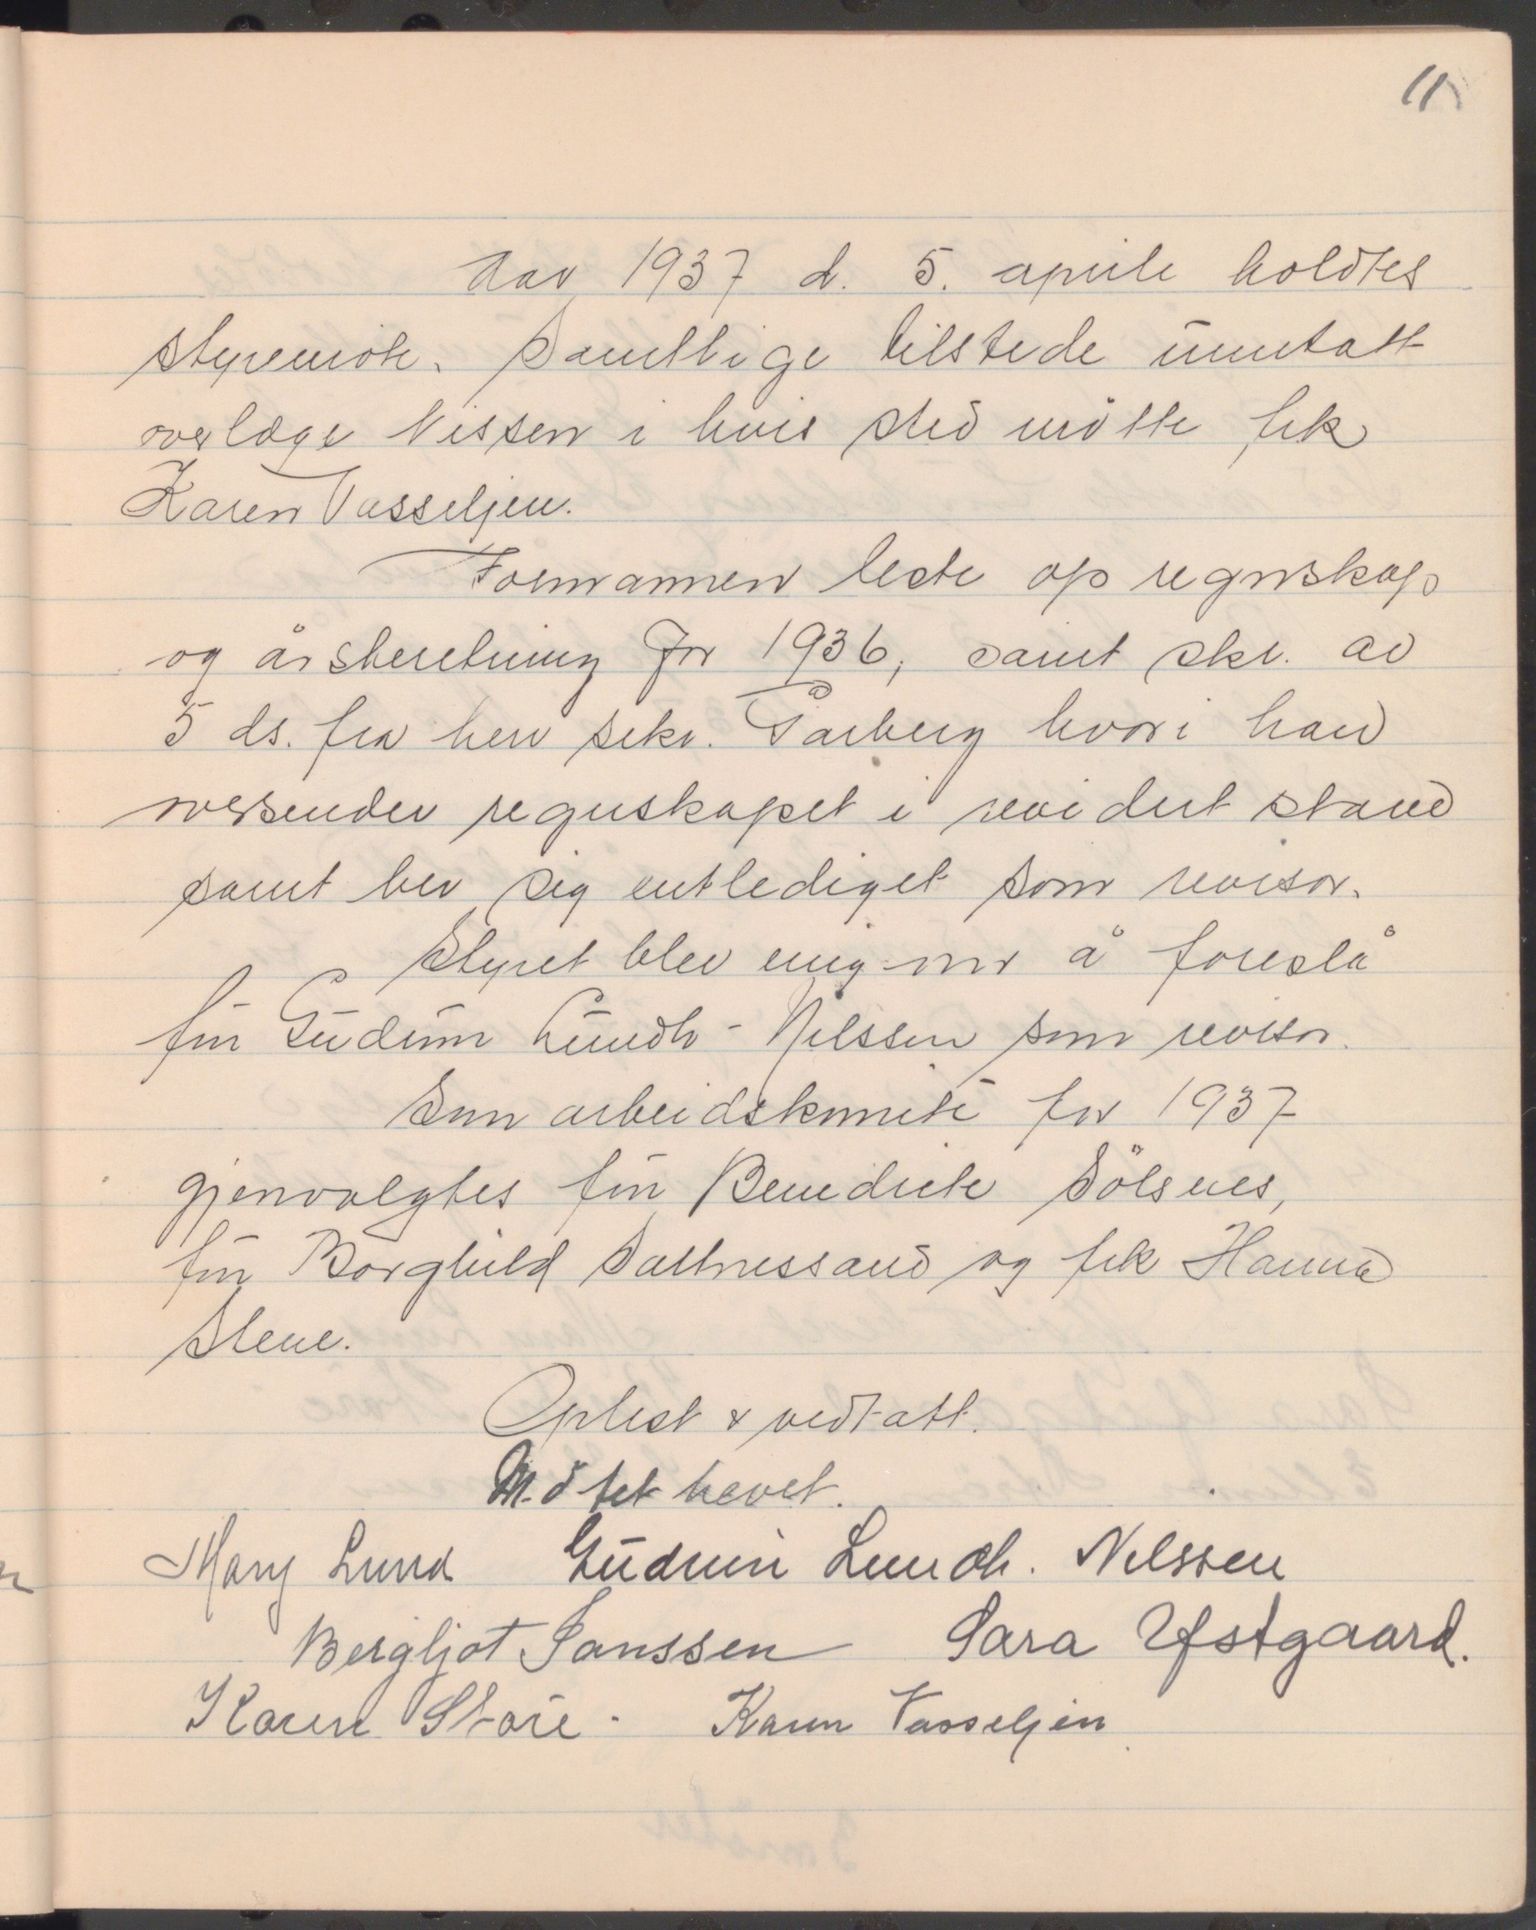 11
Aar 1937 d. 5. april holdtes
styremöte. Samtlige tilstede unntatt
overlæge Nissen i hvis sted mötte frk
Karen Vasseljen.
Formannen leste op regnskap
og årsberetning for 1936, samt skr. av
5 ds. fra herr sekr. Garberg hvori han
oversender regnskapet i revidert stand
samt ber sig entlediget som revisor.
Styret blev enig om å foreslå
fru Gudrun Lundh-Nilssen som revisor.
Som arbeidskomite for 1937
gjenvalgtes fru Benedicte Sölsnes,
fru Borghild Saltnessand og frk Hanna
Stene.
Oplest & vedtatt.
Mötet hevet.
Mary Lund Gudrun Lundh. Nilssen
Bergljot Janssen Sara Ystgaard.
Karen Støre. Karen Vasseljen